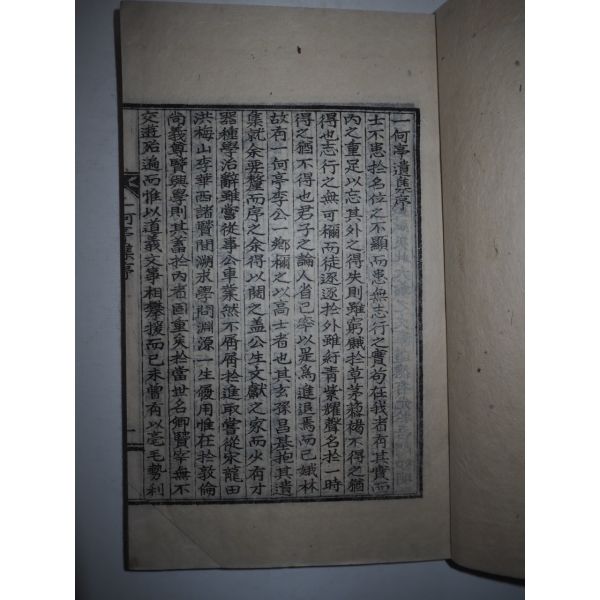 一何亭遺集序
士不患於名位之不顯而患無志行之實苟在我者有其實而
內之重足以忘其外之得失則雖窮餓於草茅蓬楊不得之猶
得也志行之無可稱而徒逐逐於外雖紆靑紫耀聲名於一時
得之猶不得也君子之論人省己率以是爲進退焉而已娥林
故有一何亭李公一鄕稱之以高士者也其玄孫昌基抱其遺
集就余要釐而序之余得以閱之盖公生文獻之家而少有才
器種學治辭雖嘗從事公車業然不屑屑於進取嘗從宋龍田
洪梅山李華西諸賢間溯求學問淵源一生優用惟在於敦倫
尙義尊賢興學則其蓄於內者固重矣於當世名卿賢宰無不
交遊殆遍而惟以道義文事相攀援而已未曾有以毫毛勢利
一何亭集序
一